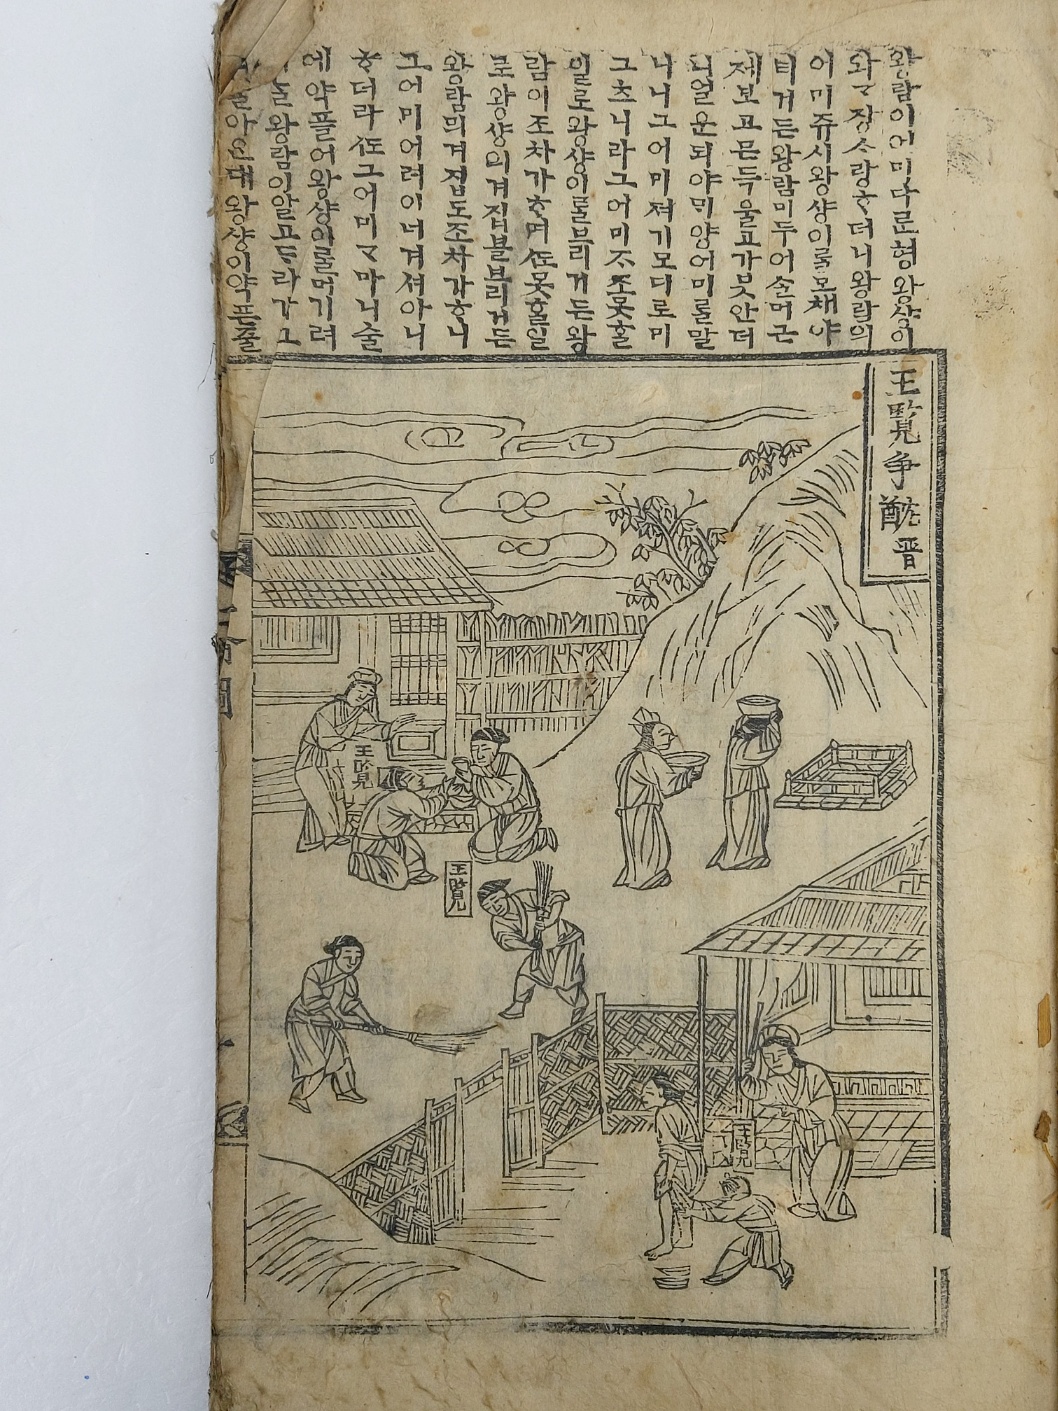 왕람이어미다ᄅᆞᆫ형왕샹이
와ᄀᆞ장ᄉᆞ랑ᄒᆞ더니왕람의
어미쥬시왕샹이ᄅᆞᆯ모채야
티거든왕람미두어ᄉᆞᆯ머근
제보고믄득울고가븟안더
니얼운되야ᄆᆡ양어미ᄅᆞᆯ말
니니그어미져기모디로미
그츠니라그어미ᄯᅩ못ᄒᆞᆯ
일로왕샹이ᄅᆞᆯ브리거든왕
람이조차가ᄒᆞ며ᄯᅩ못ᄒᆞᆯ일
로왕샹의겨집블브리거든
왕람믜겨집도조차가ᄒᆞ니
그어미어려이너겨셔아니
ᄒᆞ더라ᄯᅩ그어미ᄀᆞ마니술
에약플어왕샹이ᄅᆞᆯ머기려
왕람이알고ᄃᆞ라가그
아ᅀᆞᆫ대왕샹이약픈줄
王覽爭酖 晉
王覽
王覽
王覽